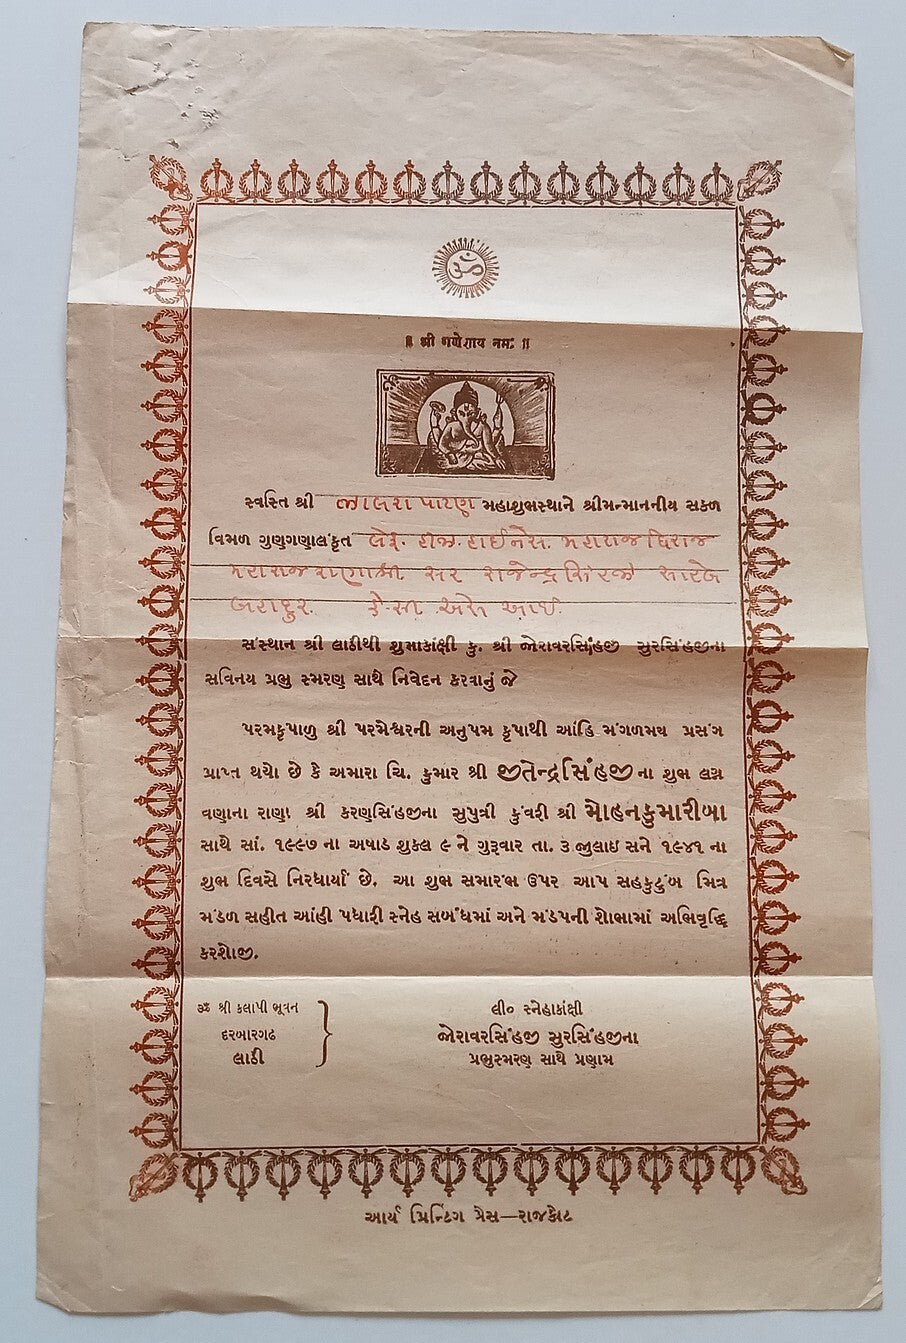 ॐ
॥ શ્રી ગણેશાય નમઃ ॥
સ્વસ્તિ શ્રી ઝાલરા પાટણ મહાશુભસ્થાને શ્રીમન્માનનીય સકળ
વિમળ ગુણગણાલંકૃત લેફ. હીઝ. હાઈનેસ. મહારાજાધિરાજ
મહારાજ રાણાશ્રી સર રાજેન્દ્રસિંહજી સાહેબ
બહાદુર. કે. સી. એસ. આઈ.
સંસ્થાન શ્રી લાઠીથી શુભાકાંક્ષી કુ. શ્રી જોરાવરસિંહજી સુરસિંહજીના
સવિનય પ્રભુ સ્મરણ સાથે નિવેદન કરવાનું જે
પરમકૃપાળુ શ્રી પરમેશ્વરની અનુપમ કૃપાથી આંહિ મંગળમય પ્રસંગ
પ્રાપ્ત થયો છે કે અમારા ચિ. કુમાર શ્રી જીતેન્દ્રસિંહજીના શુભ લગ્ન
વણાના રાણા શ્રી કરણસિંહજીના સુપુત્રી કુંવરી શ્રી મોહનકુમારીબા
સાથે સાં. ૧૯૯૭ ના અષાડ શુકલ ૯ ને ગુરૂવાર તા. ૩ જુલાઇ સને ૧૯૪૧ ના
શુભ દિવસે નિરધાર્યાં છે. આ શુભ સમારંભ ઉપર આપ સહકુટુંબ મિત્ર
મંડળ સહીત આંહી પધારી સ્નેહ સંબંધમાં અને મંડપની શોભામાં અભિવૃદ્ધિ
કરશોજી.
ૐ શ્રી કલાપી ભૂવન
દરબારગઢ
લાઠી
લી૦ સ્નેહાકાંક્ષી
જોરાવરસિંહજી સુરસિંહજીના
પ્રભુસ્મરણ સાથે પ્રણામ
આર્ય પ્રિન્ટિંગ પ્રેસ—રાજકોટ